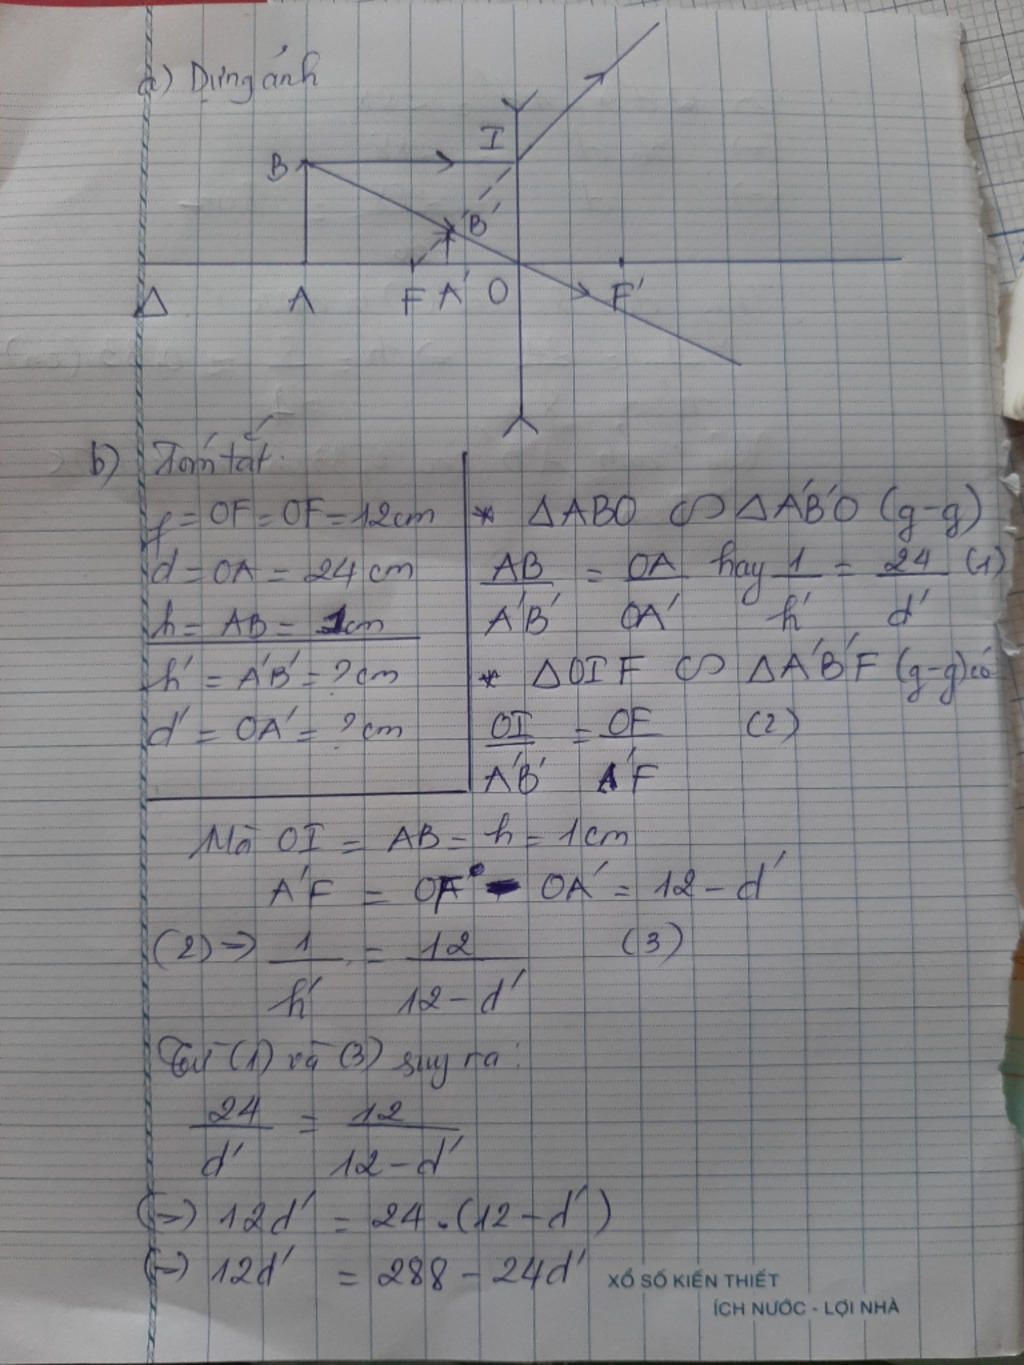 a) Dựng ảnh
I
B
B'
Δ A F A' O F'
b) Tóm tắt
f = OF = OF = 12cm
d = OA = 24cm
h = AB = 1cm
h' = A'B' = ? cm
d' = OA' = ? cm
* ΔABO ∽ ΔA'B'O (g-g)
AB/A'B' = OA/OA' hay 1/h' = 24/d' (1)
* ΔOIF ∽ ΔA'B'F (g-g) có
OI/A'B' = OF/A'F (2)
Mà OI = AB = h = 1cm
A'F = OF - OA' = 12 - d'
(2) => 1/h' = 12/12-d' (3)
Từ (1) và (3) suy ra:
24/d' = 12/12-d'
(=) 12d' = 24.(12-d')
(=) 12d' = 288 - 24d'
XỔ SỐ KIẾN THIẾT
ÍCH NƯỚC - LỢI NHÀ